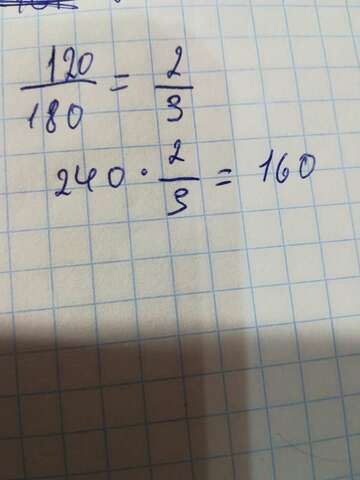 120/180 = 2/3
240 · 2/3 = 160